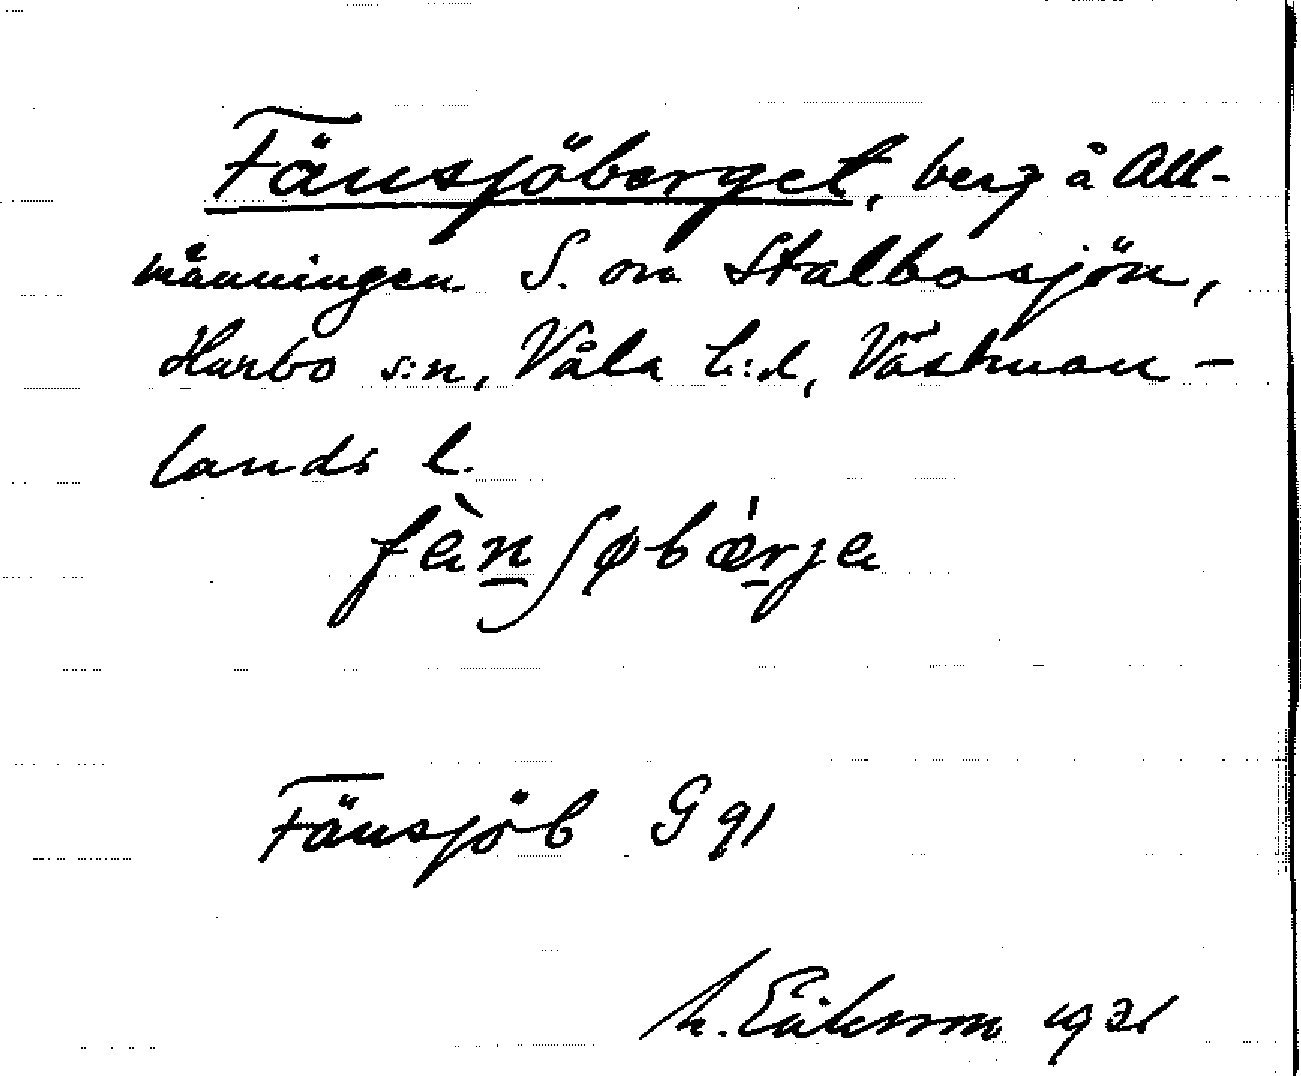 Fänsjöberget, berg å All-
männingen S. om Stalbosjön,
Harbo s:n, Våla h:d, Västman-
lands l.
fèn∫øbǽrjɐ
Fänsjöb G 91
M. Eriksson 1931